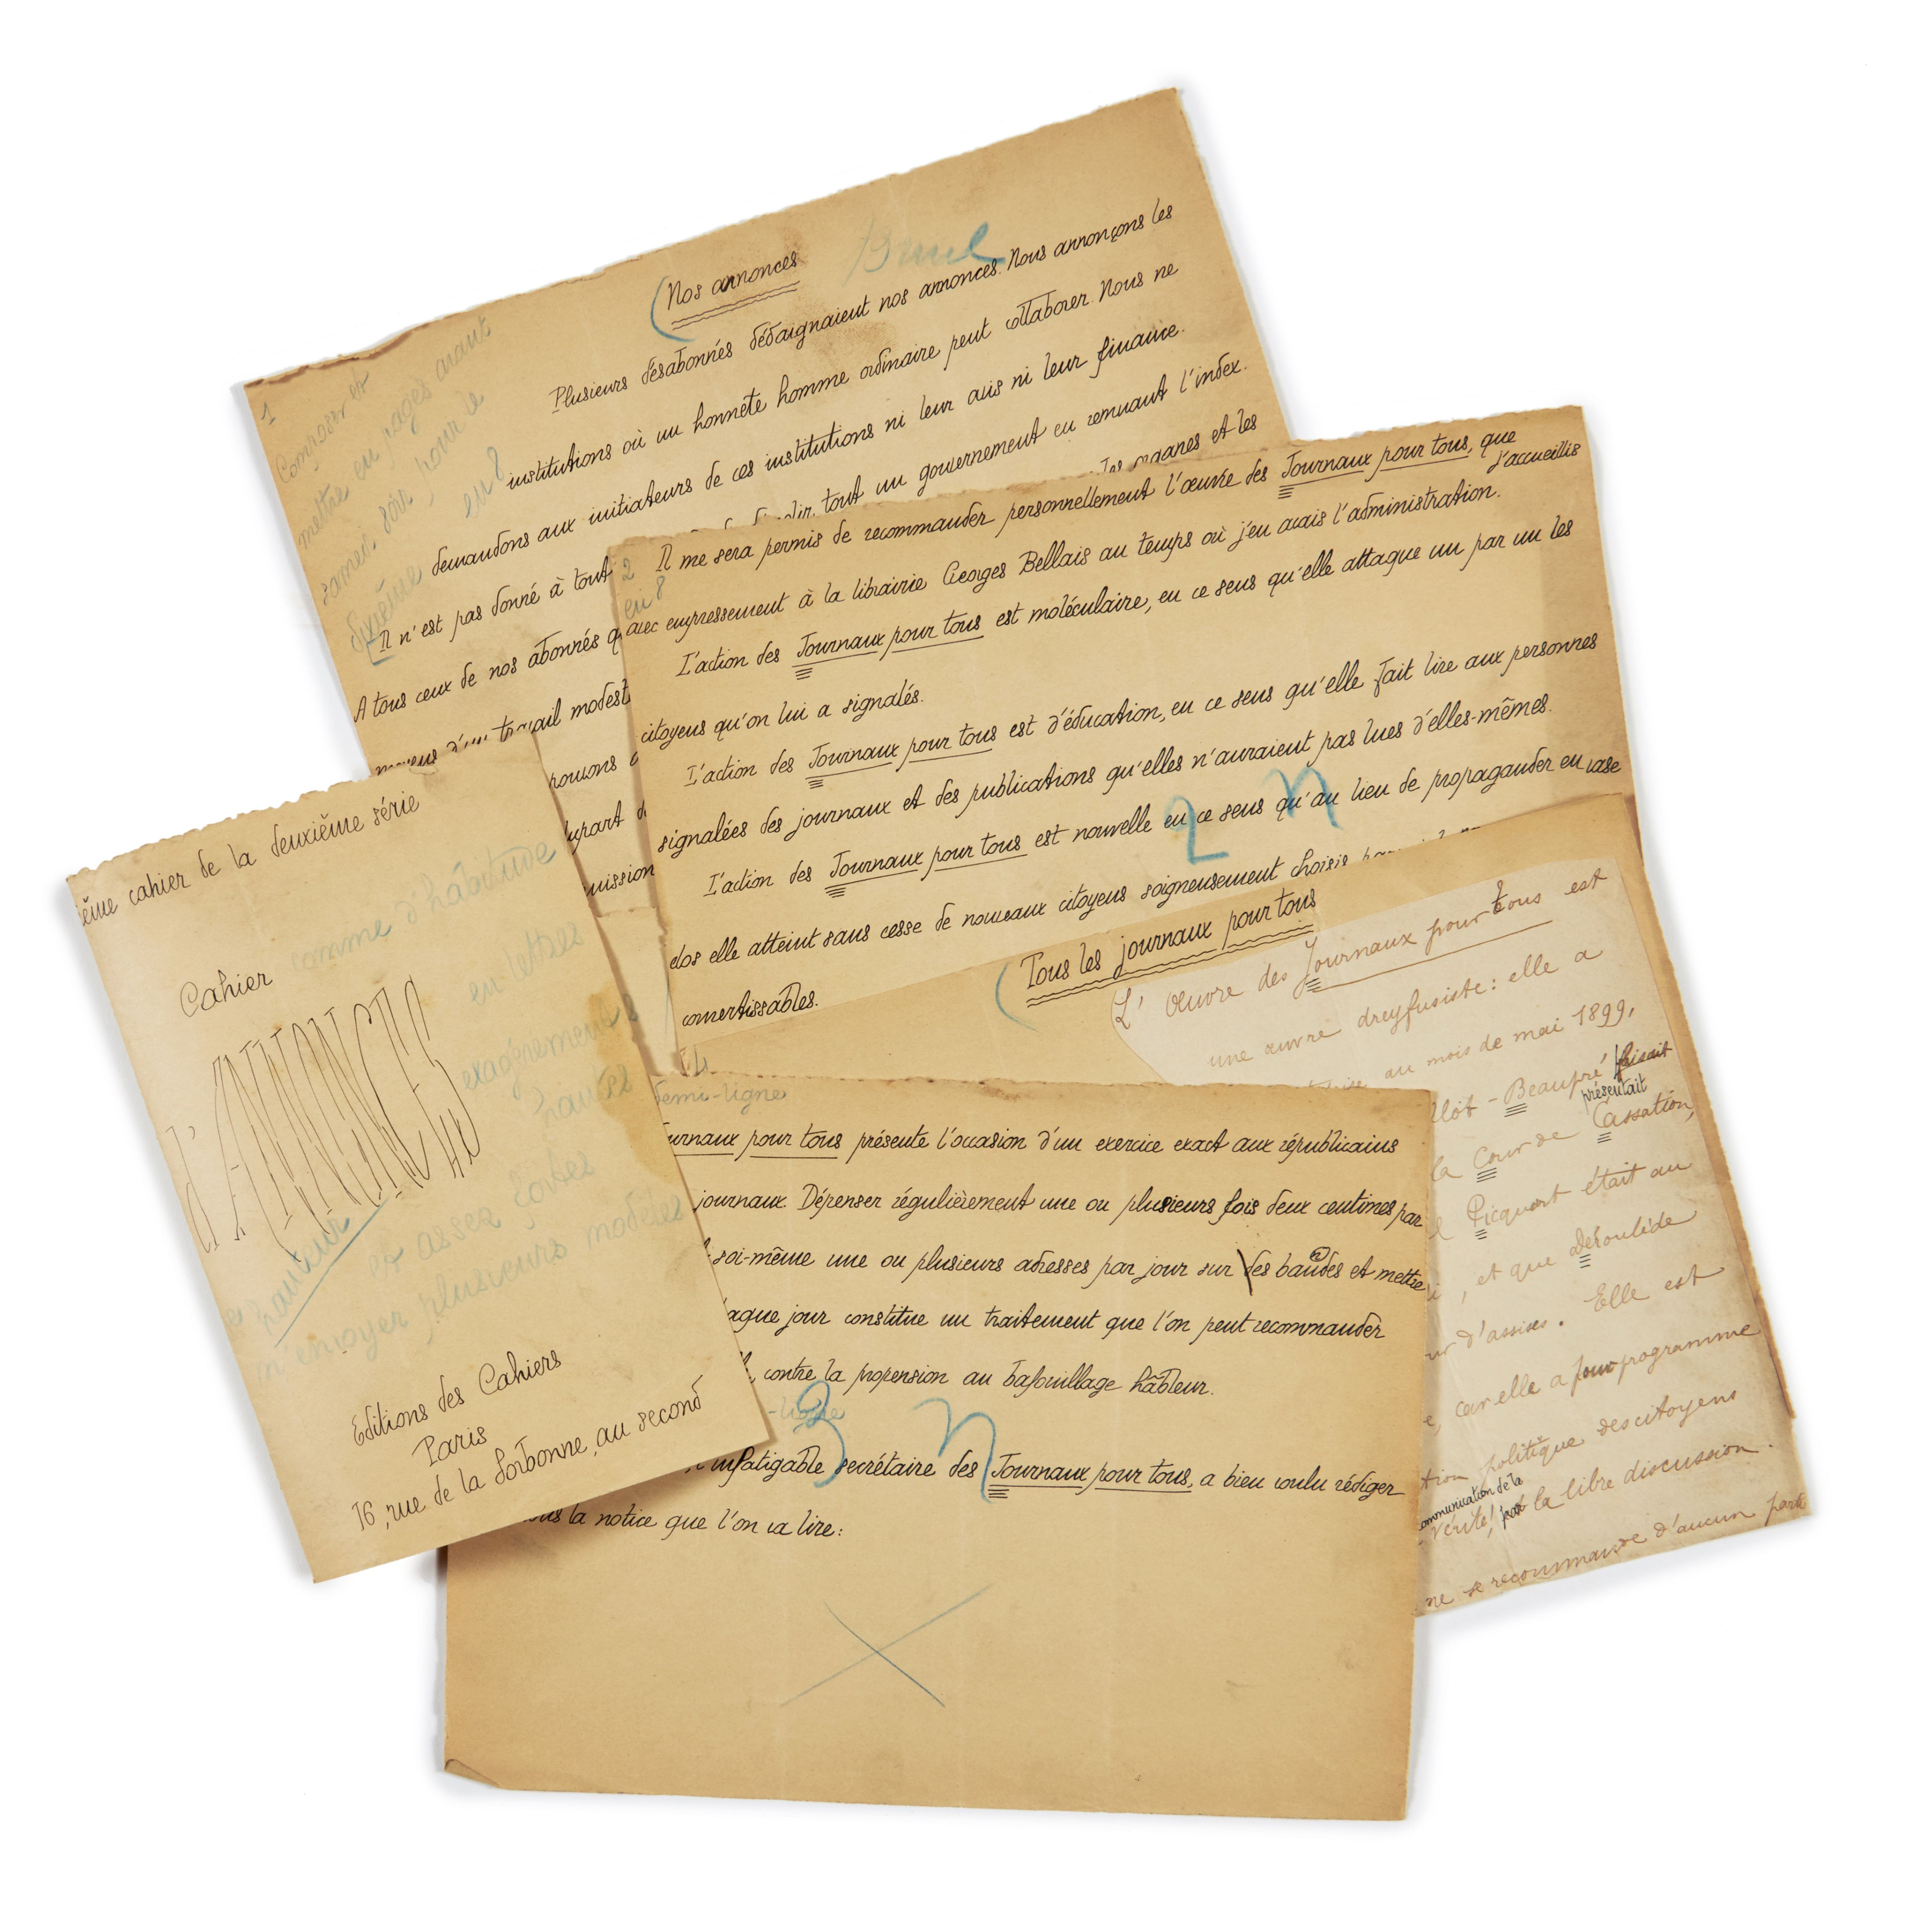 Nos annonces
1
Composer et
mettre en pages avant
samedi soir, pour le
dixième en 8
Plusieurs désabonnés dédaignaient nos annonces. Nous annonçons les
institutions où un honnête homme ordinaire peut collaborer. Nous ne
demandons aux initiateurs de ces institutions ni leur avis ni leur finance.
Il n'est pas donné à tout
tout un gouvernement en remuant l'index.
A tous ceux de nos abonnés
organes et les
moyens d'un travail modest
pouvons
lupart d
mission
2
en 8
Il me sera permis de recommander personnellement l'œuvre des Journaux pour tous, que
j'accueillis
avec empressement à la librairie Georges Bellais au temps où j'en avais l'administration.
L'action des Journaux pour tous est moléculaire, en ce sens qu'elle attaque un par un les
citoyens qu'on lui a signalés.
L'action des Journaux pour tous est d'éducation, en ce sens qu'elle fait lire aux personnes
signalées des journaux et des publications qu'elles n'auraient pas lues d'elles-mêmes.
L'action des Journaux pour tous est nouvelle en ce sens qu'au lieu de propagander en vase
clos elle atteint sans cesse de nouveaux citoyens soigneusement choisis
convertissables.
2 n
Tous les journaux pour tous
L'Œuvre des Journaux pour tous est
une œuvre dreyfusiste : elle a
au mois de mai 1899,
llot-Beaupré faisait
présentait
la Cour de Cassation,
Picquart était au
, et que Déroulède
ur d'assises. Elle est
, car elle a pour programme
tion politique des citoyens
ommunication de la
vérité, par la libre discussion.
ne se recommande d'aucun parti
ème cahier de la deuxième série
Cahier comme d'habitude
d'ANNONCES
en lettres
exagérément
hautes
hauteur
et assez fortes
m'envoyer plusieurs modèles
Editions des Cahiers
Paris
16, rue de la Sorbonne, au second
demi-ligne
urnaux pour tous présente l'occasion d'un exercice exact aux républicains
journaux. Dépenser régulièrement une ou plusieurs fois deux centimes par
soi-même une ou plusieurs adresses par jour sur des bandes et mettre
aque jour constitue un traitement que l'on peut recommander
contre la propension au bafouillage hâbleur.
-ligne
3 n
infatigable secrétaire des Journaux pour tous, a bien voulu rédiger
la notice que l'on va lire :